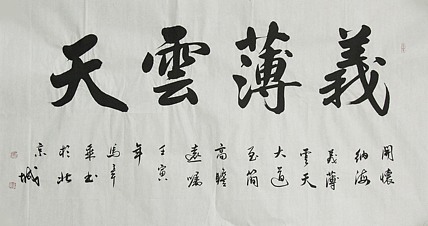 義薄雲天
開懷
納海
義薄
雲天
大道
至簡
高瞻
遠矚
壬寅
年
馬
書
於北
京城